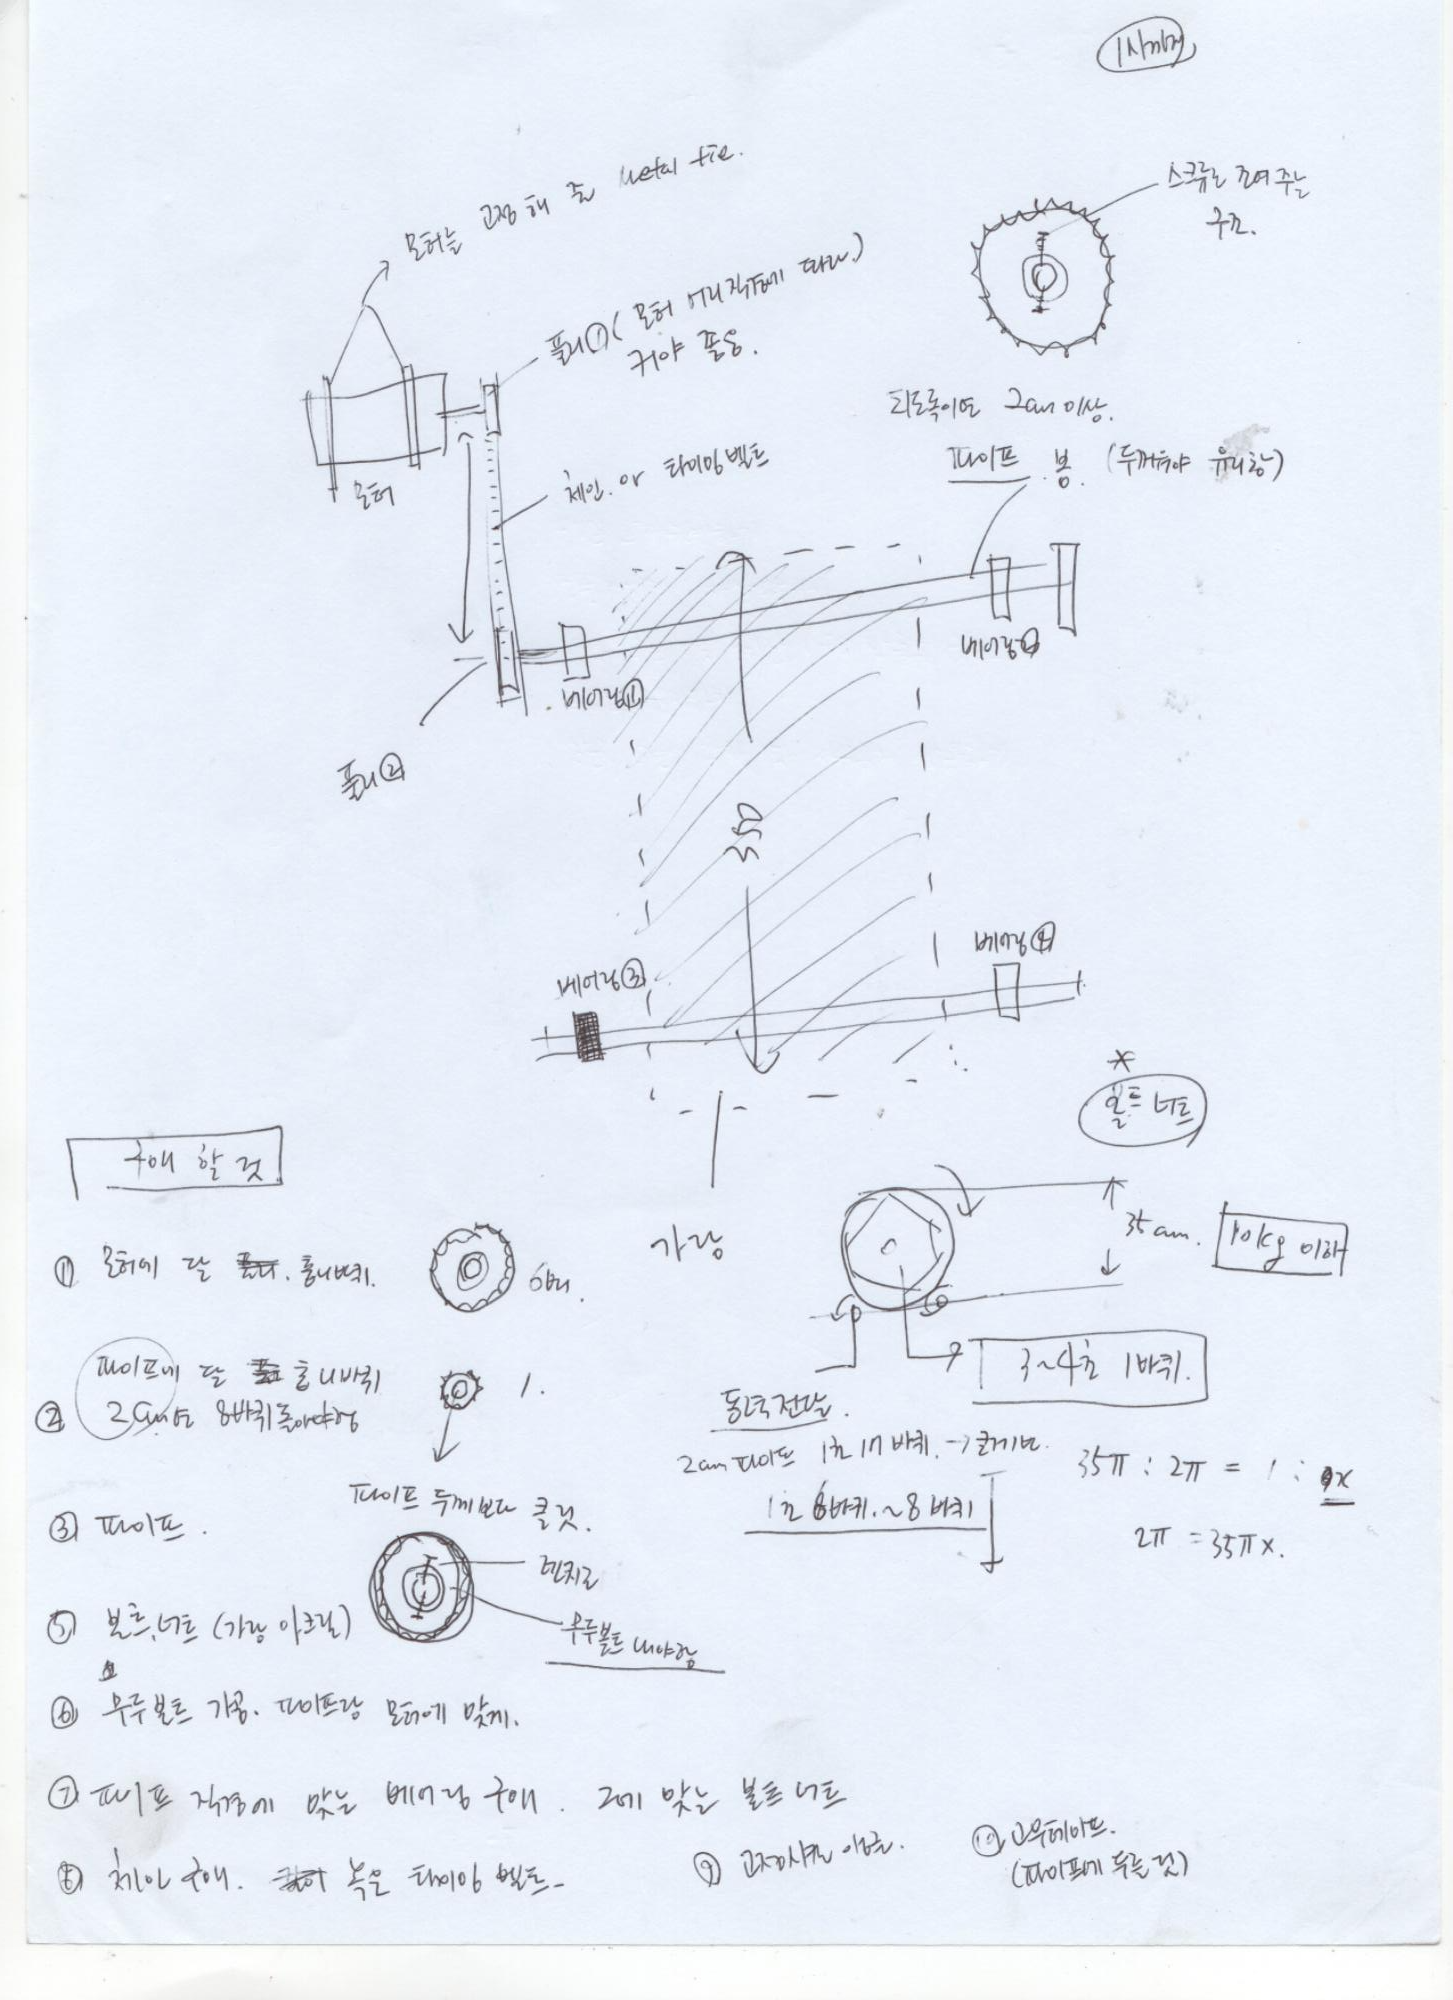 모터를 고정해 줄 metal tie.
스크류로 조여 주는
구조.
풀리① (모터 머리 직경에 따라.)
커야 좋음.
되도록이면 2cm 이상.
파이프 봉. (두꺼워야 유리함)
모터
체인 or 타이밍 벨트
베어링②
베어링①
풀리②
350
베어링④
베어링③
볼트 너트
구매 할 것
가랑
35cm.
10kg 이하
① 모터에 달 톱니바퀴.
파이프에 달 톱니바퀴 1.
② 2cm면 8바퀴 돌아야함
3~4초 1바퀴.
동력전달.
2cm 파이프 1초 17바퀴. →
1초 6바퀴.~8바퀴
35π : 2π = 1 : x
2π = 35πx.
파이프 두께보다 클것.
③ 파이프.
렌치로
무두볼트 내야함
⑤ 볼트, 너트 (가랑 아크릴)
⑥ 무두볼트 가공. 파이프랑 모터에 맞게.
⑦ 파이프 직경에 맞는 베어링 구매. 그에 맞는 볼트 너트
⑧ 체인 구매. 혹은 타이밍 벨트.
⑨ 고정시킬
⑩ 고무테이프.
(파이프에 두를 것)